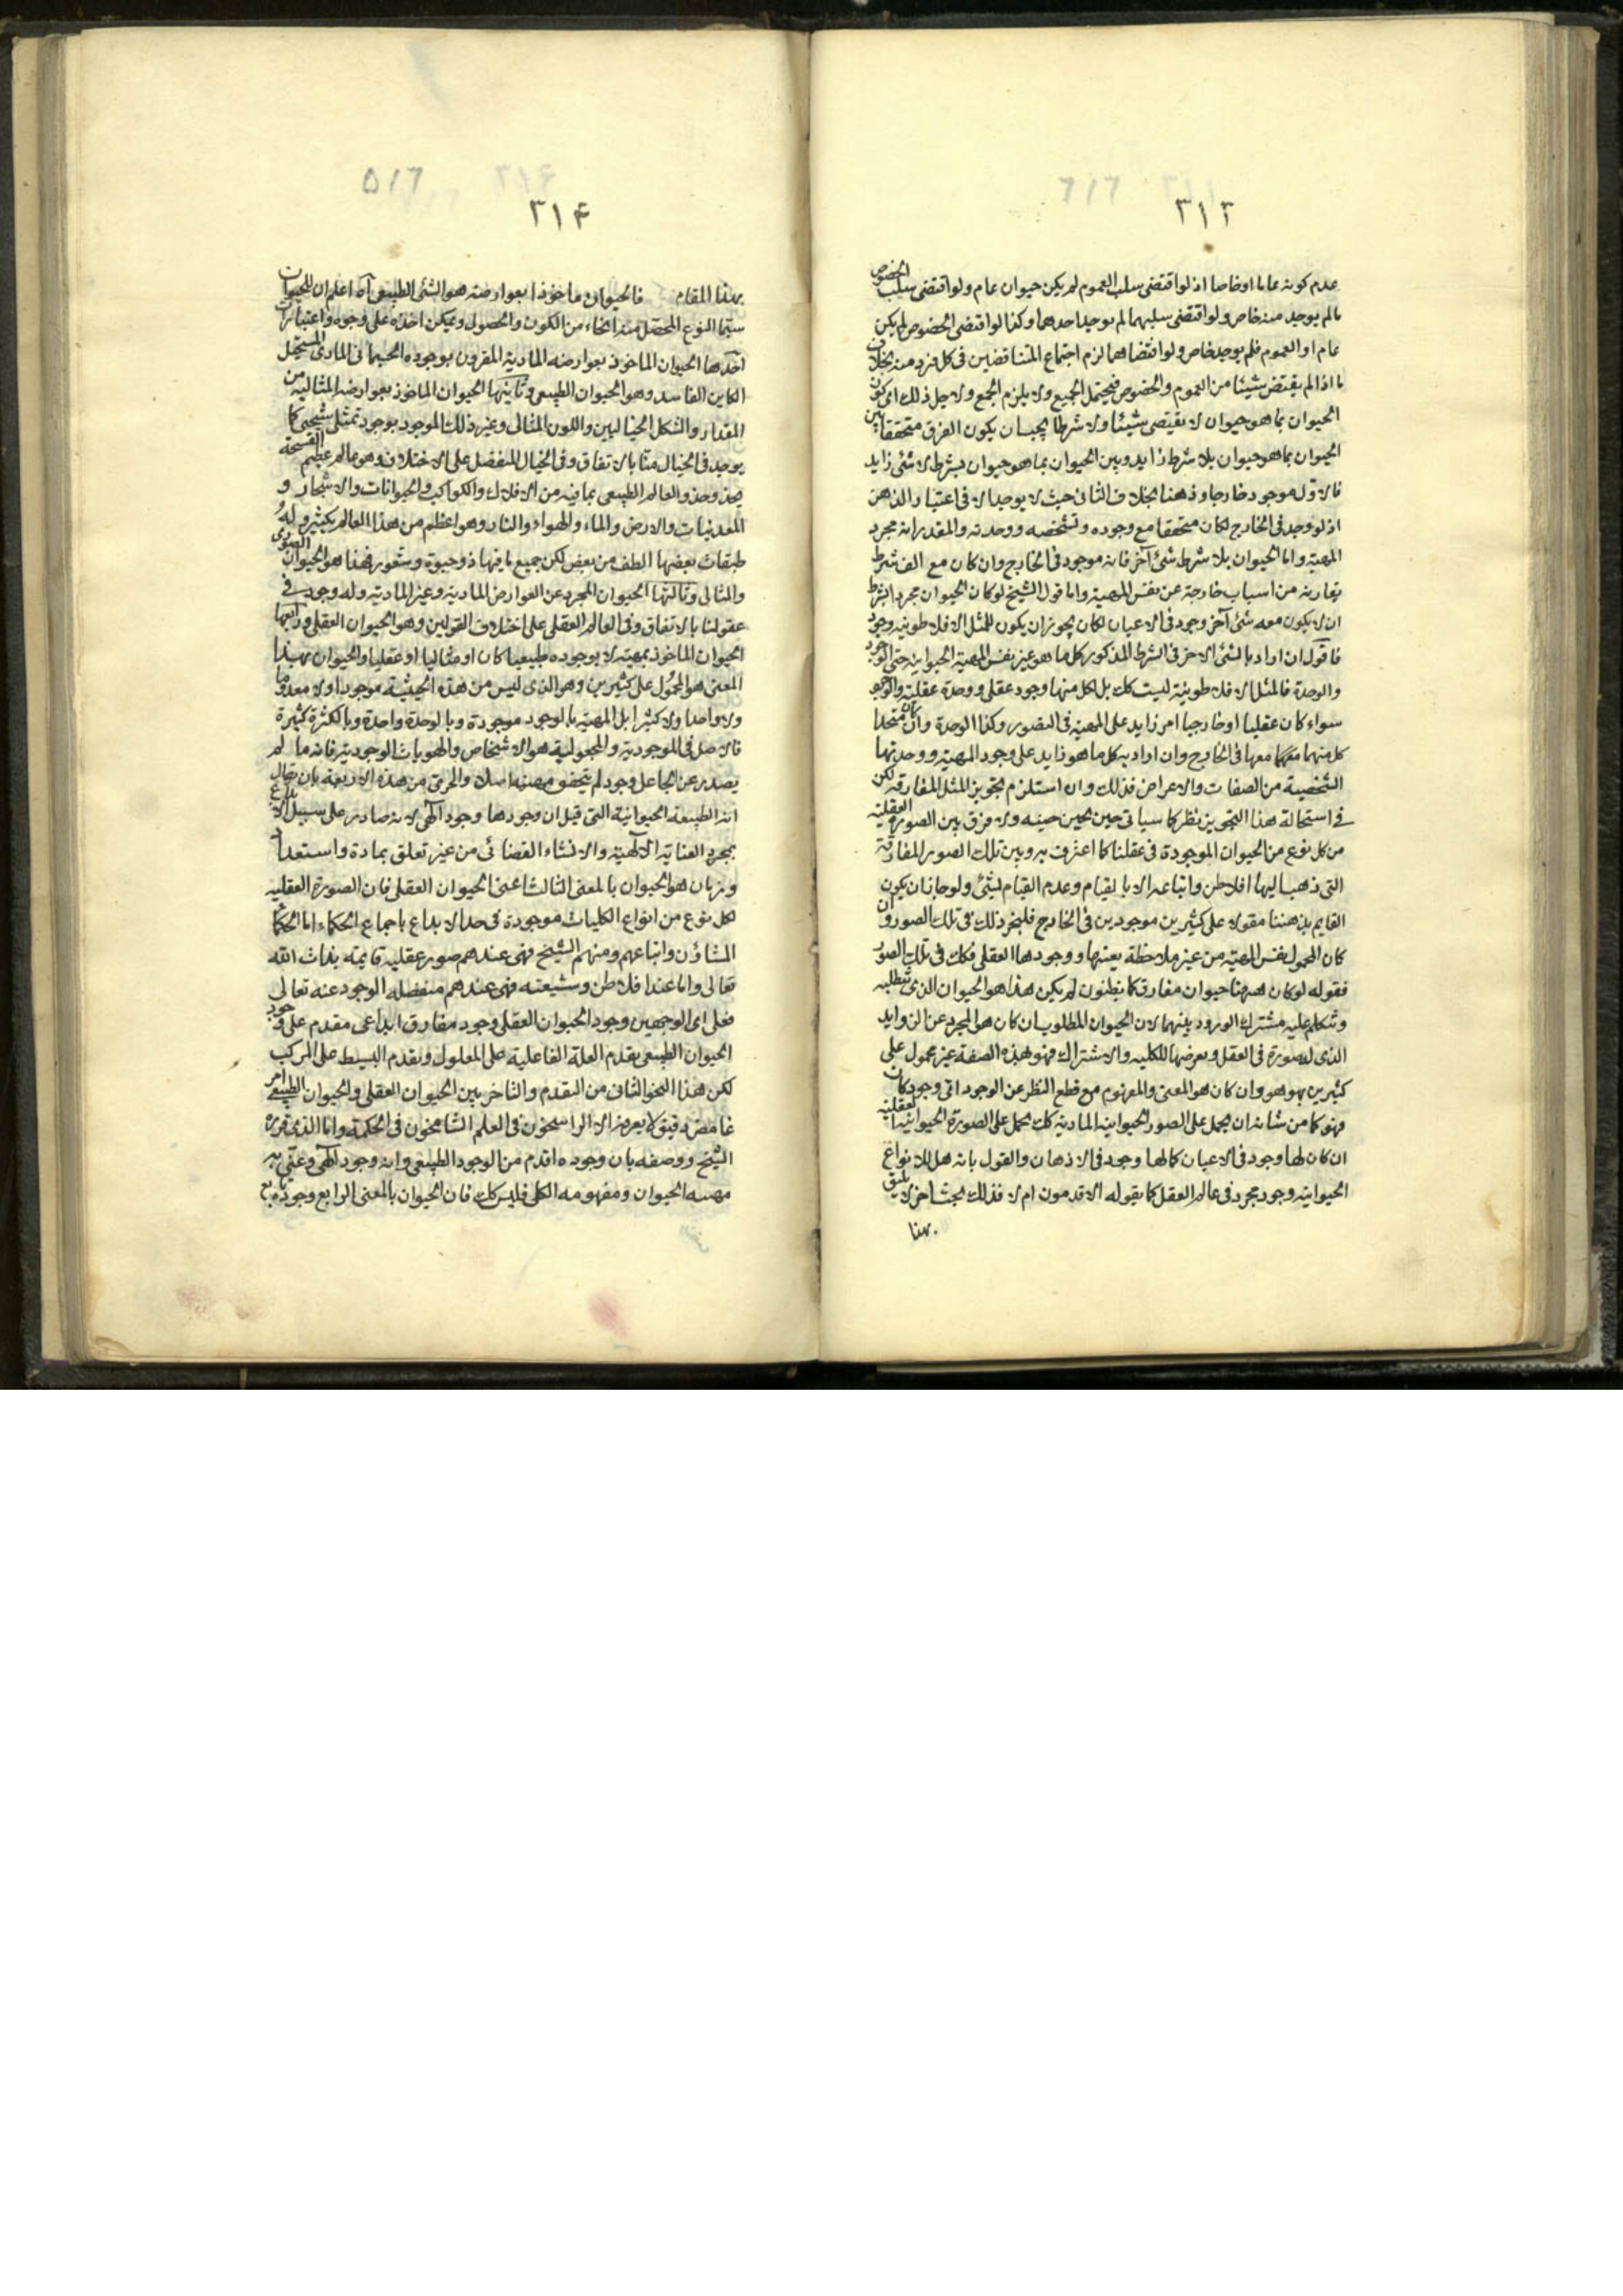 ٣١٣
عدم كونه عاما او خاصا اذ لو اقتضى سلب العموم لم يكن حيوان عام ولو اقتضى سلب الخصوص
مالم يوجد منه خاص ولو اقتضى سلبهما لم يوجد احدهما وكذا لو اقتضى الخصوص لم يكن
عام او العموم فلم يوجد خاص ولو اقتضاهما لزم اجتماع المتناقضين فى كل فرد منه بخلاف
ما اذا لم يقتض شيئا من العموم والخصوص فيحتمل الجميع ولا يلزم الجمع ولا جل ذلك اى كون
الحيوان بما هو حيوان لا يقتضى شيئا ولا شرطا يجب ان يكون الفرق متحققا بين
الحيوان بما هو حيوان بلا شرط زايد وبين الحيوان بما هو حيوان بشرط لا شئ زايد
فالاول موجود خارجا وذهنا بخلاف الثانى حيث لا يوجد الا فى اعتبار الذهن
اذ لو وجد فى الخارج لكان متحققا مع وجوده وتشخصه ووحدته والمقدر انه مجرد
المهية واما الحيوان بلا شرط شئ آخر فانه موجود فى الخارج وان كان مع الف شرط
يقارنه من اسباب خارجة عن نفس المهية واما قول الشيخ لو كان الحيوان مجردا بشرط
ان لا يكون معه شئ آخر وجود فى الاعيان لكان يجوز ان يكون للمثل الافلاطونيه وجود
فاقول ان اراد بالشئ الاخر فى الشرط المذكور كل ما هو غير نفس المهية الحيوانيه حتى الوجود
والوحدة فالمثل الافلاطونية ليست كك بل لكل منها وجود عقلى ووحدة عقلية والوجود
سواء كان عقليا او خارجيا امر زايد على المهية فى التصور وكذا الوحدة وان كان متحدا
كل منهما معها فى الخارج وان اراد به كل ما هو زايد على وجود المهية ووحدتها
الشخصية من الصفات والاعراض فذلك وان استلزم تجويز المثل المفارقه لكن
فى استحالة هذا التجويز نظر كما سياتى حين يحين حينه ولا فرق بين الصورة العقلية
من كل نوع من الحيوان الموجودة فى عقلنا كما اعترف به وبين تلك الصور المفارقة
التى ذهب اليها افلاطن واتباعه الا بالقيام وعدم القيام لشئ ولو جاز ان يكون
القايم بذهننا مقولا على كثيرين موجودين فى الخارج فليجز ذلك فى تلك الصور وان
كان المحمول نفس المهية من غير ملاحظة تعينها ووجودها العقلى فكك فى تلك الصور
فقوله لو كان ههنا حيوان مفارق كما يظنون لم يكن هذا هو الحيوان الذى نطلبه
ونتكلم عليه مشترك الورود بينهما لان الحيوان المطلوب ان كان هو المجرد عن الزوايد
الذى له صورة فى العقل ويعرضها الكليه والاشتراك فهو بهذه الصفة غير محمول على
كثيرين بهو هو وان كان هو المعنى والمفهوم مع قطع النظر عن الوجود اى وجود كان
فهو كما من شانه ان يحمل على الصور الحيوانيه المادية كك يحمل على الصورة الحيوانية العقلية
ان كان لها وجود فى الاعيان كما لها وجود فى الاذهان والقول بانه هل للانواع
الحيوانيه وجود مجرد فى عالم العقل كما يقوله الاقدمون ام لا فذلك بحث آخر لا يليق
بهذا
٣١۴
بهذا المقام فالحيوان ماخوذا بعوارضه هو الشئ الطبيعى آه اعلم ان للحيوان
سيما النوع المحصل منه انحاء من الكون والحصول ويمكن اخذه على وجوه واعتبارات
احدها الحيوان الماخوذ بعوارضه المادية المقرون بوجوده الجسمانى المادى المستحيل
الكاين الفاسد وهو الحيوان الطبيعى وثانيها الحيوان الماخوذ بعوارضه المثاليه من
المقدار والشكل الخياليين واللون المثالى وغير ذلك الموجود بوجود تمثلى شبحى كما
يوجد فى الخيال منا بالاتفاق وفى الخيال المنفصل على الاختلاف وهو عالم عظيم الفسحة
يحذو حذو العالم الطبيعى بما فيه من الافلاك والكواكب والحيوانات والاشجار و
المعدنيات والارض والماء والهواء والنار وهو اعظم من هذا العالم بكثير وله
طبقات بعضها الطف من بعض لكن جميع ما فيها ذو حيوة وشعور فهذا هو الحيوان الصورى
والمثالى وثالثها الحيوان المجرد عن العوارض المادية وغير المادية وله وجود فى
عقولنا بالاتفاق وفى العالم العقلى على اختلاف القولين وهو الحيوان العقلى ورابعها
الحيوان الماخوذ بمهيته لا بوجوده طبيعيا كان او مثاليا او عقليا والحيوان بهذا
المعنى هو المحمول على كثيرين وهو الذى ليس من هذه الحيثية موجودا ولا معدوما
ولا واحدا ولا كثيرا بل المهية بالوجود موجودة وبالوحدة واحدة وبالكثرة كثيرة
فالاصل فى الموجودية والمجعولية هو الاشخاص والهويات الوجودية فانه ما لم
يصدر عن الجاعل وجود لم يتحقق مهية اصلا والحرى من هذه الاربعة بان يقال
انه الطبيعة الحيوانية التى قيل ان وجودها وجود آلهى لانه صادر على سبيل الابداع
بمجرد العناية الآلهية والانشاء القضائى من غير تعلق بمادة واستعداد
وزمان هو الحيوان بالمعنى الثالث اعنى الحيوان العقلى فان الصورة العقليه
لكل نوع من انواع الكليات موجودة فى حد الابداع باجماع الحكماء اما الحكماء
المشاؤن واتباعهم ومنهم الشيخ فهى عندهم صور عقليه قايمه بذات الله
تعالى واما عند افلاطن وشيعته فهى عندهم منفصله الوجود عنه تعالى
فعلى اى الوجهين وجود الحيوان العقلى وجود مفارق ابداعى مقدم على وجود
الحيوان الطبيعى تقدم العلة الفاعلية على المعلول وتقدم البسيط على المركب
لكن هذا النحو الثانى من التقدم والتاخر بين الحيوان العقلى والحيوان الطبيعى امر
غامض دقيق لا يعرفه الا الراسخون فى العلم الشامخون فى الحكمة واما الذى قرره
الشيخ ووصفه بان وجوده اقدم من الوجود الطبيعى وانه وجود آلهى وعنى به
مهيه الحيوان ومفهومه الكلى فليس كك فان الحيوان بالمعنى الرابع وجوده تابع